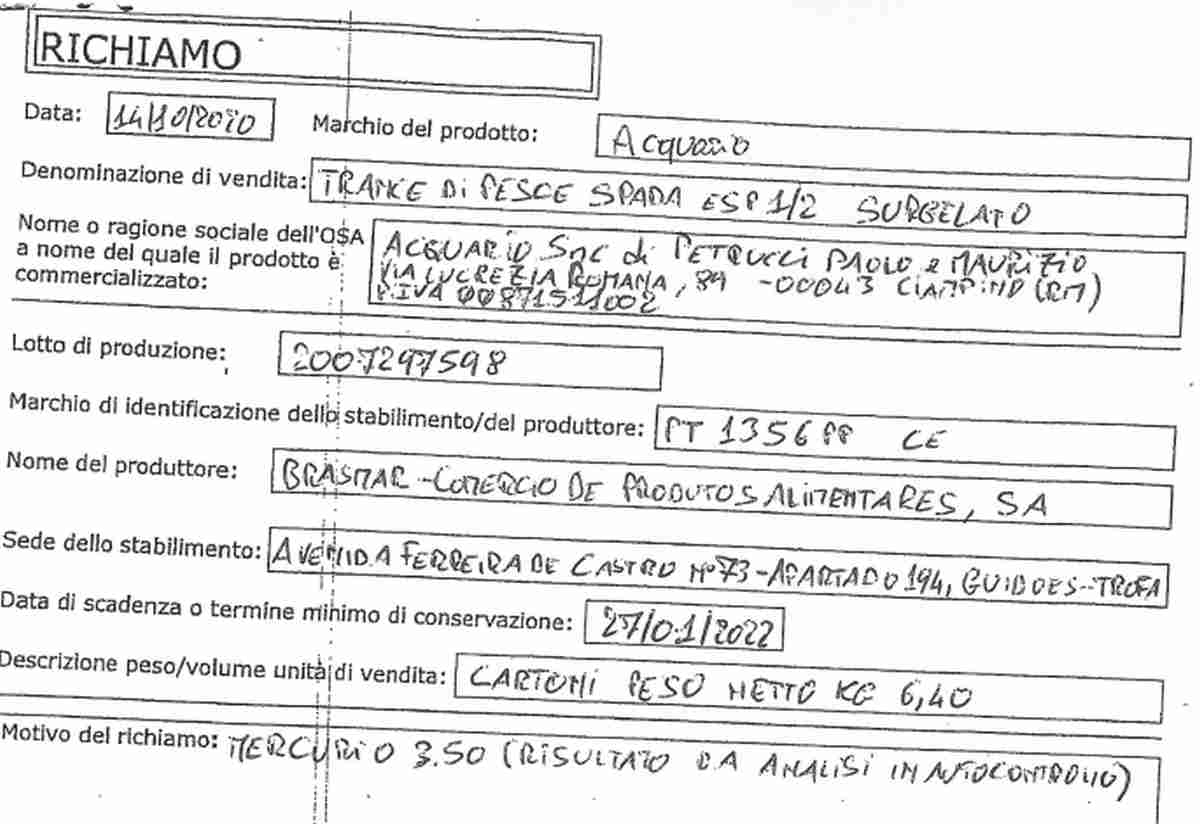 RICHIAMO
Data: 14/10/2020 Marchio del prodotto: Acquario
Denominazione di vendita: TRANCE Di PESCE SPADA ESP 1/2 SURGELATO
Nome o ragione sociale dell'OSA
a nome del quale il prodotto è
commercializzato:
ACQUARIO Snc di PETRUCCI PAOLO e MAURIZIO
VIA LUCREZIA ROMANA, 89 -00043 CIAMPINO (RM)
P.IVA 00871511002
Lotto di produzione: 2007297598
Marchio di identificazione dello stabilimento/del produttore: PT 1356 PP CE
Nome del produttore: BRASMAR-COMERCIO DE PRODUTOS ALIMENTARES, SA
Sede dello stabilimento: AVENIDA FERREIRA DE CASTRO Nº73-APARTADO 194, GUIDOES--TROFA
Data di scadenza o termine minimo di conservazione: 27/01/2022
Descrizione peso/volume unità di vendita: CARTONI PESO NETTO KG 6,40
Motivo del richiamo: MERCURIO 3.50 (RISULTATO DA ANALISI IN AUTOCONTROLLO)